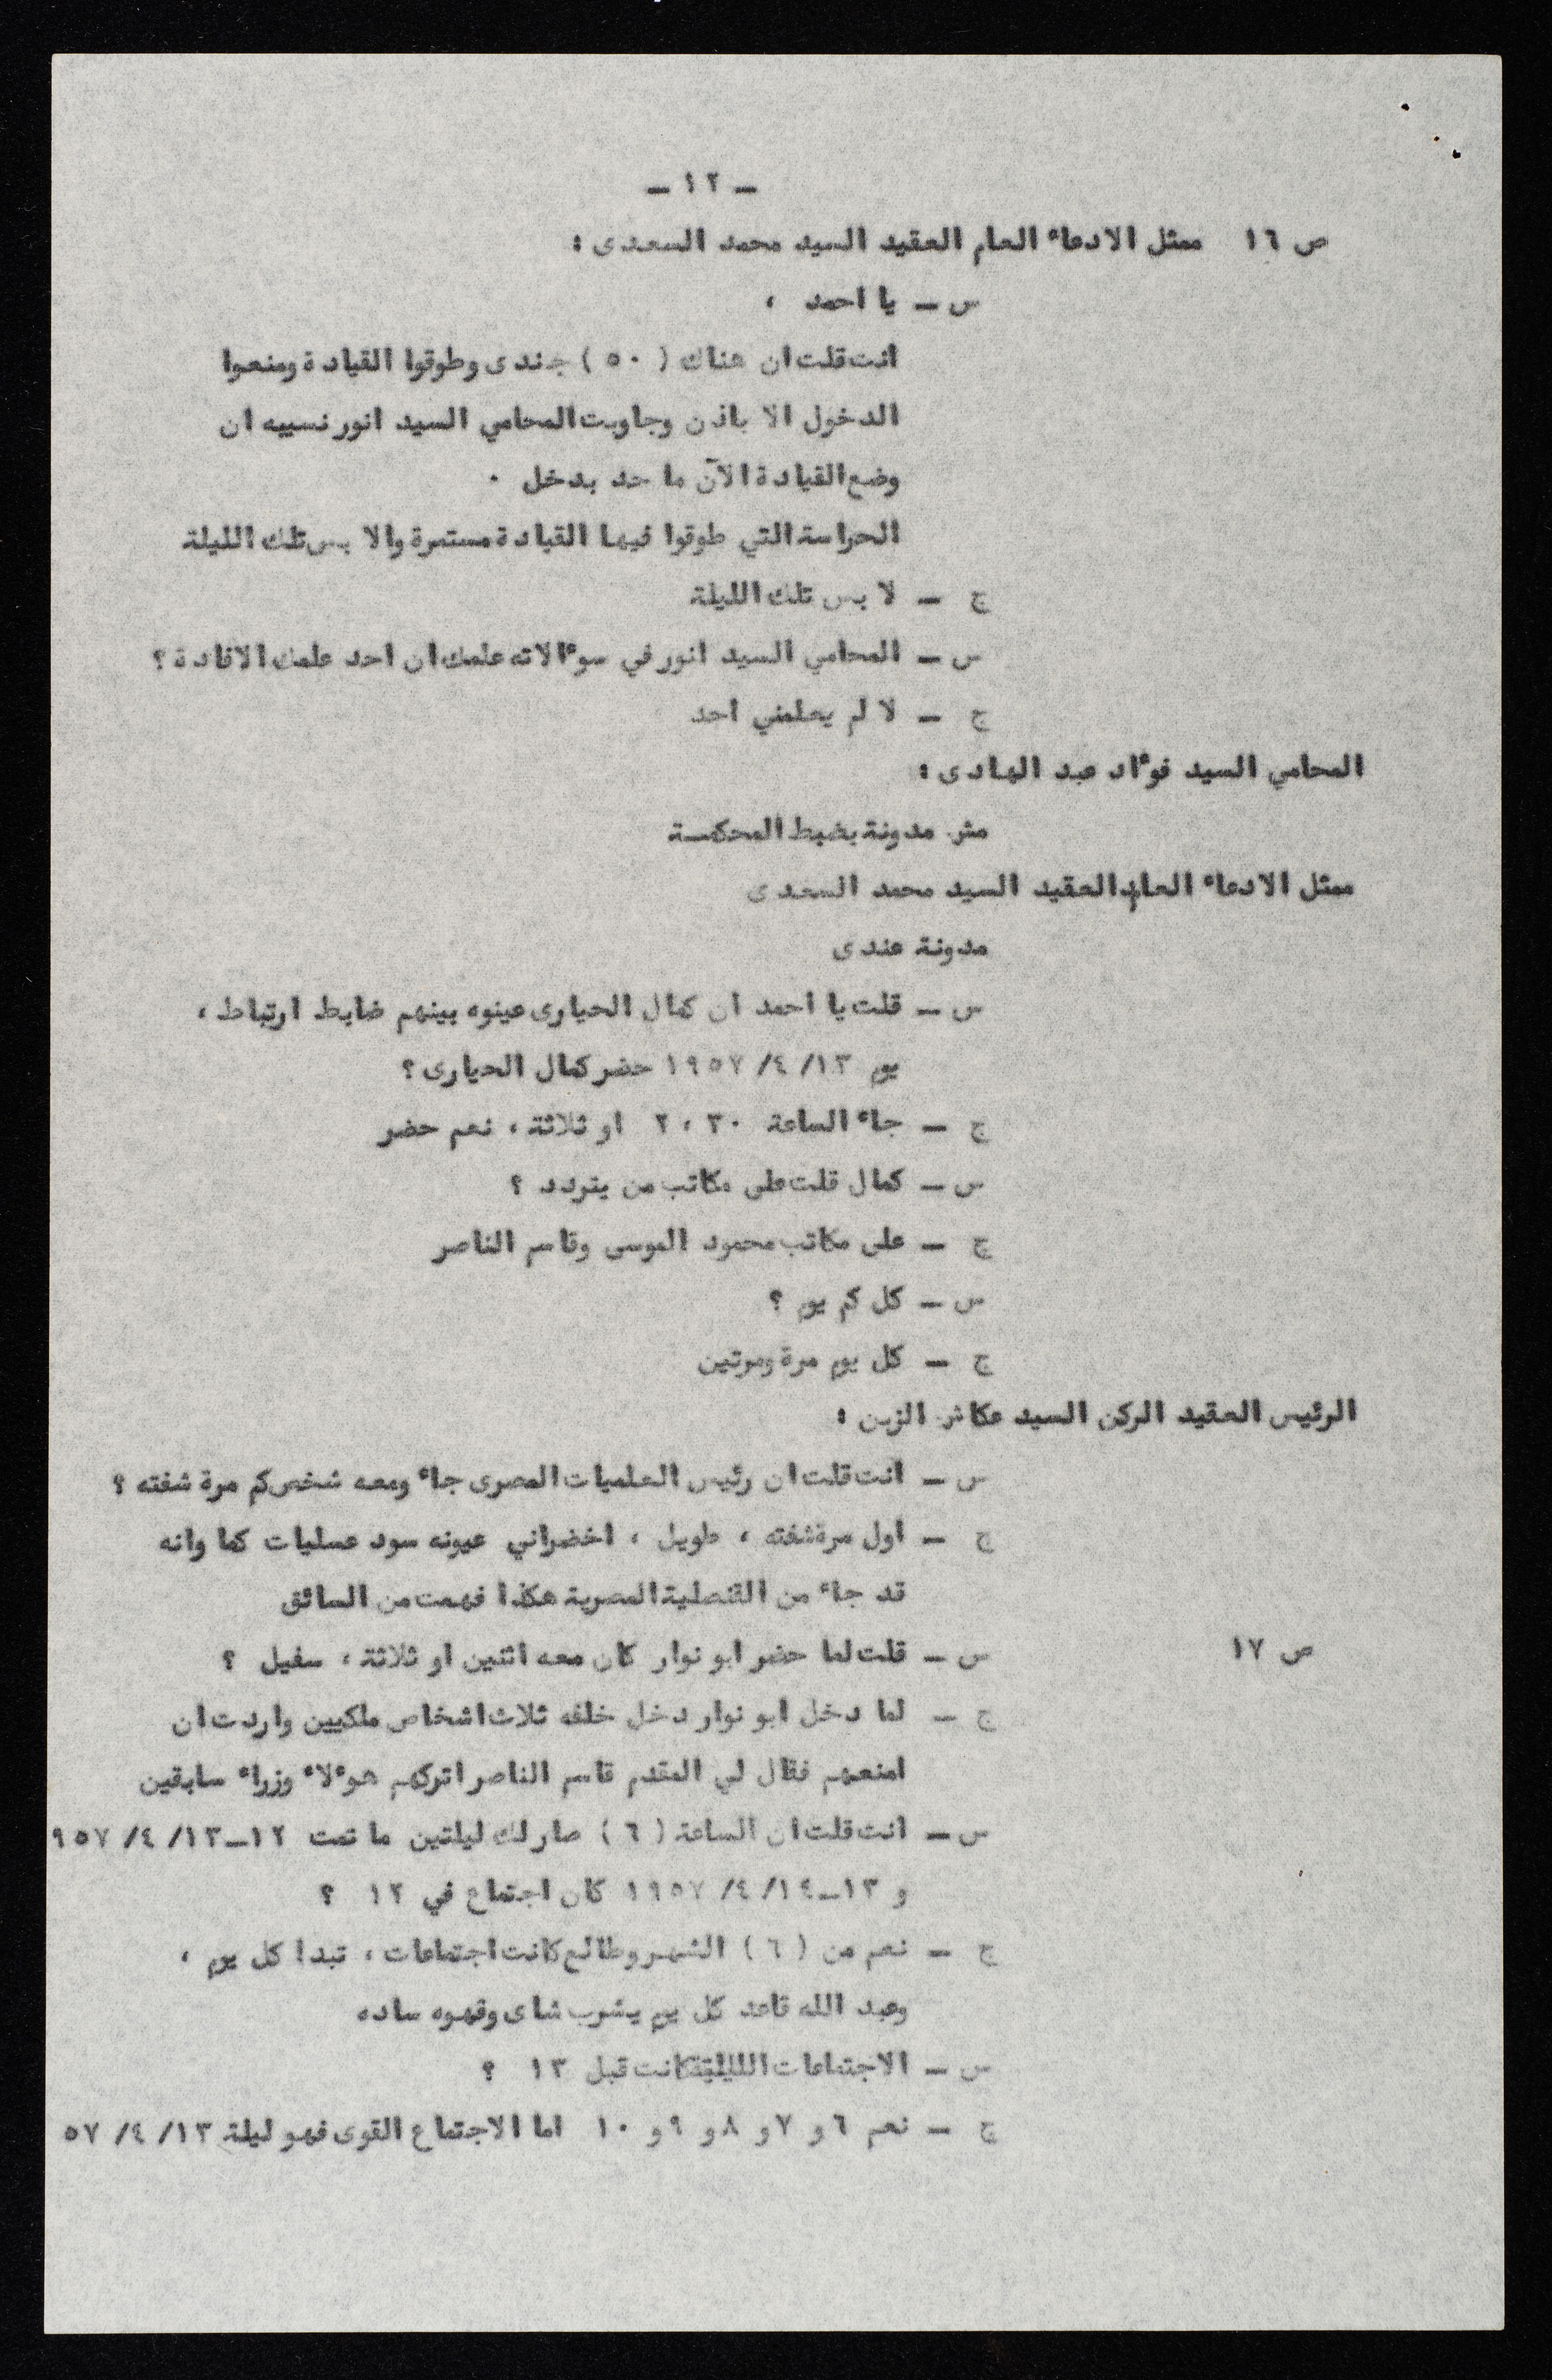 ـ ١٢ ـ
ص ١٦ ممثل الادعاء العام العقيد السيد محمد السعدى :
س ـ يا احمد ،
انت قلت ان هناك ( ٥٠ ) جندى وطوقوا القيادة ومنعوا
الدخول الا باذن وجاوبت المحامي السيد انور نسيبه ان
وضع القيادة الآن ما حد بدخل ٠
الحراسة التي طوقوا فيها القيادة مستمرة والا بس تلك الليلة
ج ـ لا بس تلك الليلة
س ـ المحامي السيد انور في سوءالاته علمك ان احد علمك الافادة ؟
ج ـ لا لم يعلمني احد
المحامي السيد فوءاد عبد الهادى :
مش مدونة بضبط المحكمة
ممثل الادعاء العام العقيد السيد محمد السعدى
مدونة عندى
س ـ قلت يا احمد ان كمال الحيارى عينوه بينهم ضابط ارتباط ،
يوم ١٣/ ٤/ ١٩٥٧ حضر كمال الحيارى ؟
ج ـ جاء الساعة ٣٠ ، ٢ او ثلاثة ، نعم حضر
س ـ كمال قلت على مكاتب من يتردد ؟
ج ـ على مكاتب محمود الموسى وقاسم الناصر
س ـ كل كم يوم ؟
ج ـ كل يوم مرة ومرتين
الرئيس العقيد الركن السيد عكاش الزبن :
س ـ انت قلت ان رئيس العلميات المصرى جاء ومعه شخص كم مرة شفته ؟
ج ـ اول مرة شفته ، طويل ، اخضراني عيونه سود عسليات كما وانه
قد جاء من القنصلية المصرية هكذا فهمت من السائق
ص ١٧ س ـ قلت لما حضر ابو نوار كان معه اثنين او ثلاثة ، سفيل ؟
ج ـ لما دخل ابو نوار دخل خلفه ثلاث اشخاص ملكيين واردت ان
امنعهم فقال لي المقدم قاسم الناصر اتركهم هوءلاء وزراء سابقين
س ـ انت قلت ان الساعة ( ٦ ) صار لك ليلتين ما نمت ١٢ـ١٣/ ٤/ ٩٥٧
و ١٣ـ١٤/ ٤/ ١٩٥٧ كان اجتماع في ١٢ ؟
ج ـ نعم من ( ٦ ) الشهر وطالع كانت اجتماعات ، تبدا كل يوم ،
وعبد الله قاعد كل يوم يشرب شاى وقهوه ساده
س ـ الاجتماعات الليلية كانت قبل ١٣ ؟
ج ـ نعم ٦ و ٧ و ٨ و ٩ و ١٠ اما الاجتماع القوى فهو ليلة ١٣/ ٤/ ٥٧